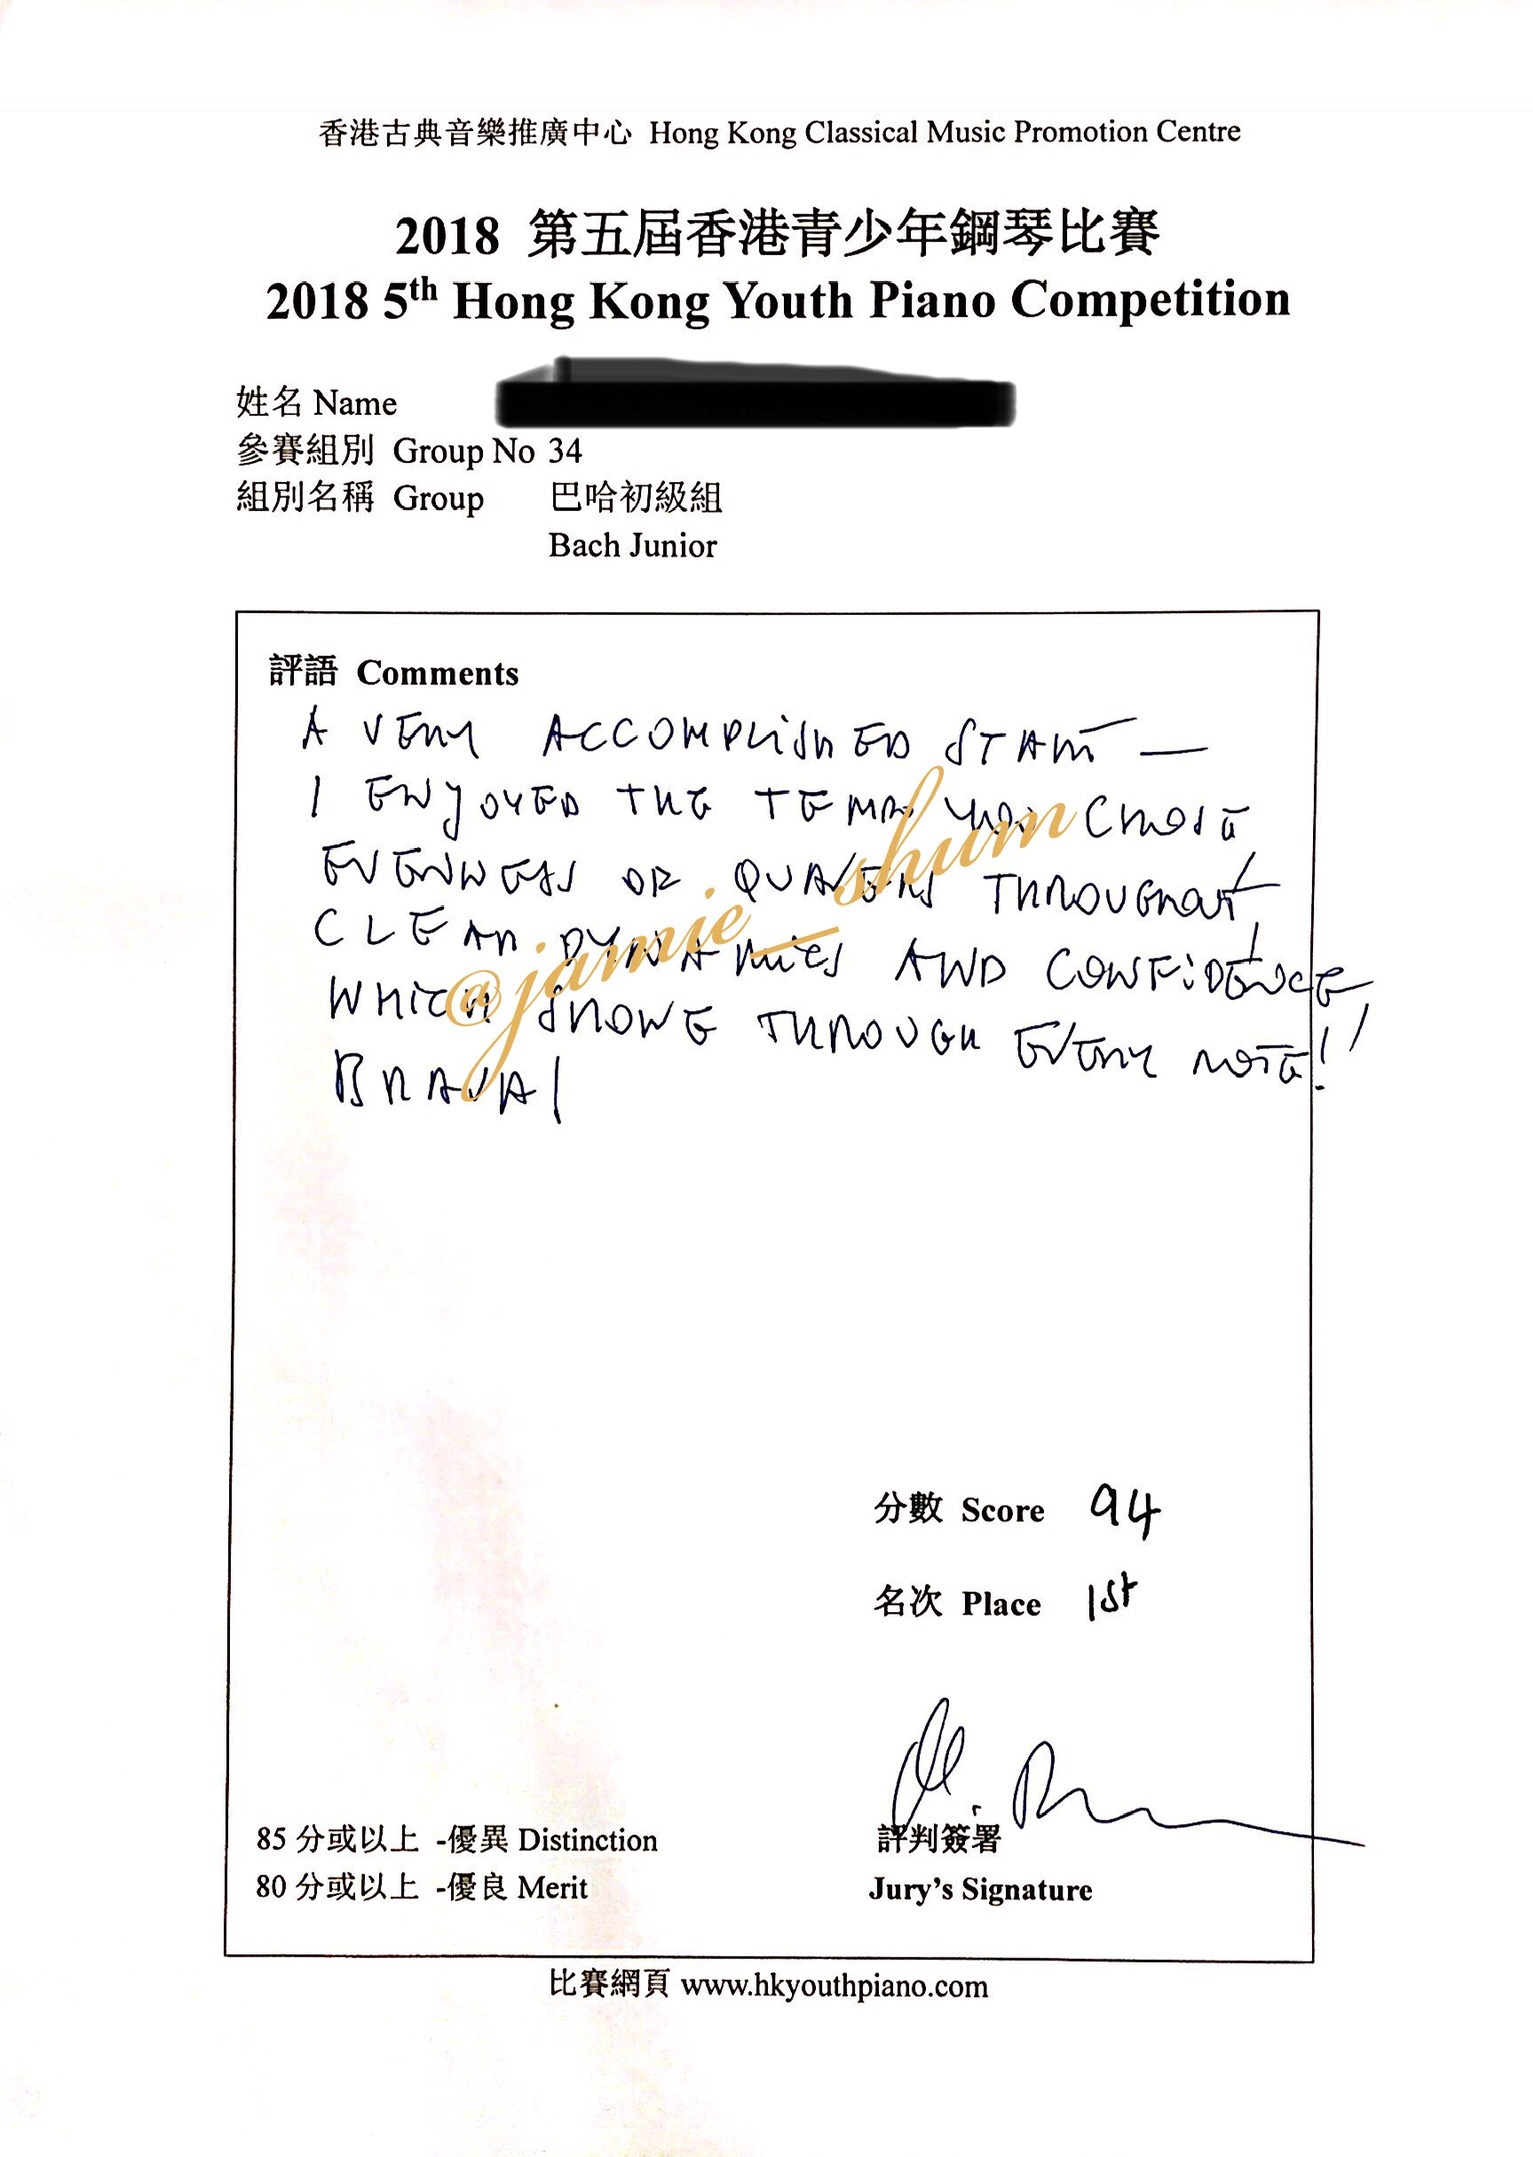 香港古典音樂推廣中心 Hong Kong Classical Music Promotion Centre
2018 第五屆香港青少年鋼琴比賽
2018 5th Hong Kong Youth Piano Competition
姓名 Name
參賽組別 Group No 34
組別名稱 Group 巴哈初級組
Bach Junior
評語 Comments
A VERY ACCOMPLISHED START —
I ENJOYED THE TEMPO YOU CHOSE
EVENNESS OF QUAVERS THROUGHOUT!
CLEAR DYNAMICS AND CONFIDENCE!
WHICH SHONE THROUGH EVERY NOTE!!
BRAVA!
@jamie_shum
分數 Score 94
名次 Place 1st
85 分或以上 -優異 Distinction
評判簽署
80 分或以上 -優良 Merit
Jury's Signature
比賽網頁 www.hkyouthpiano.com